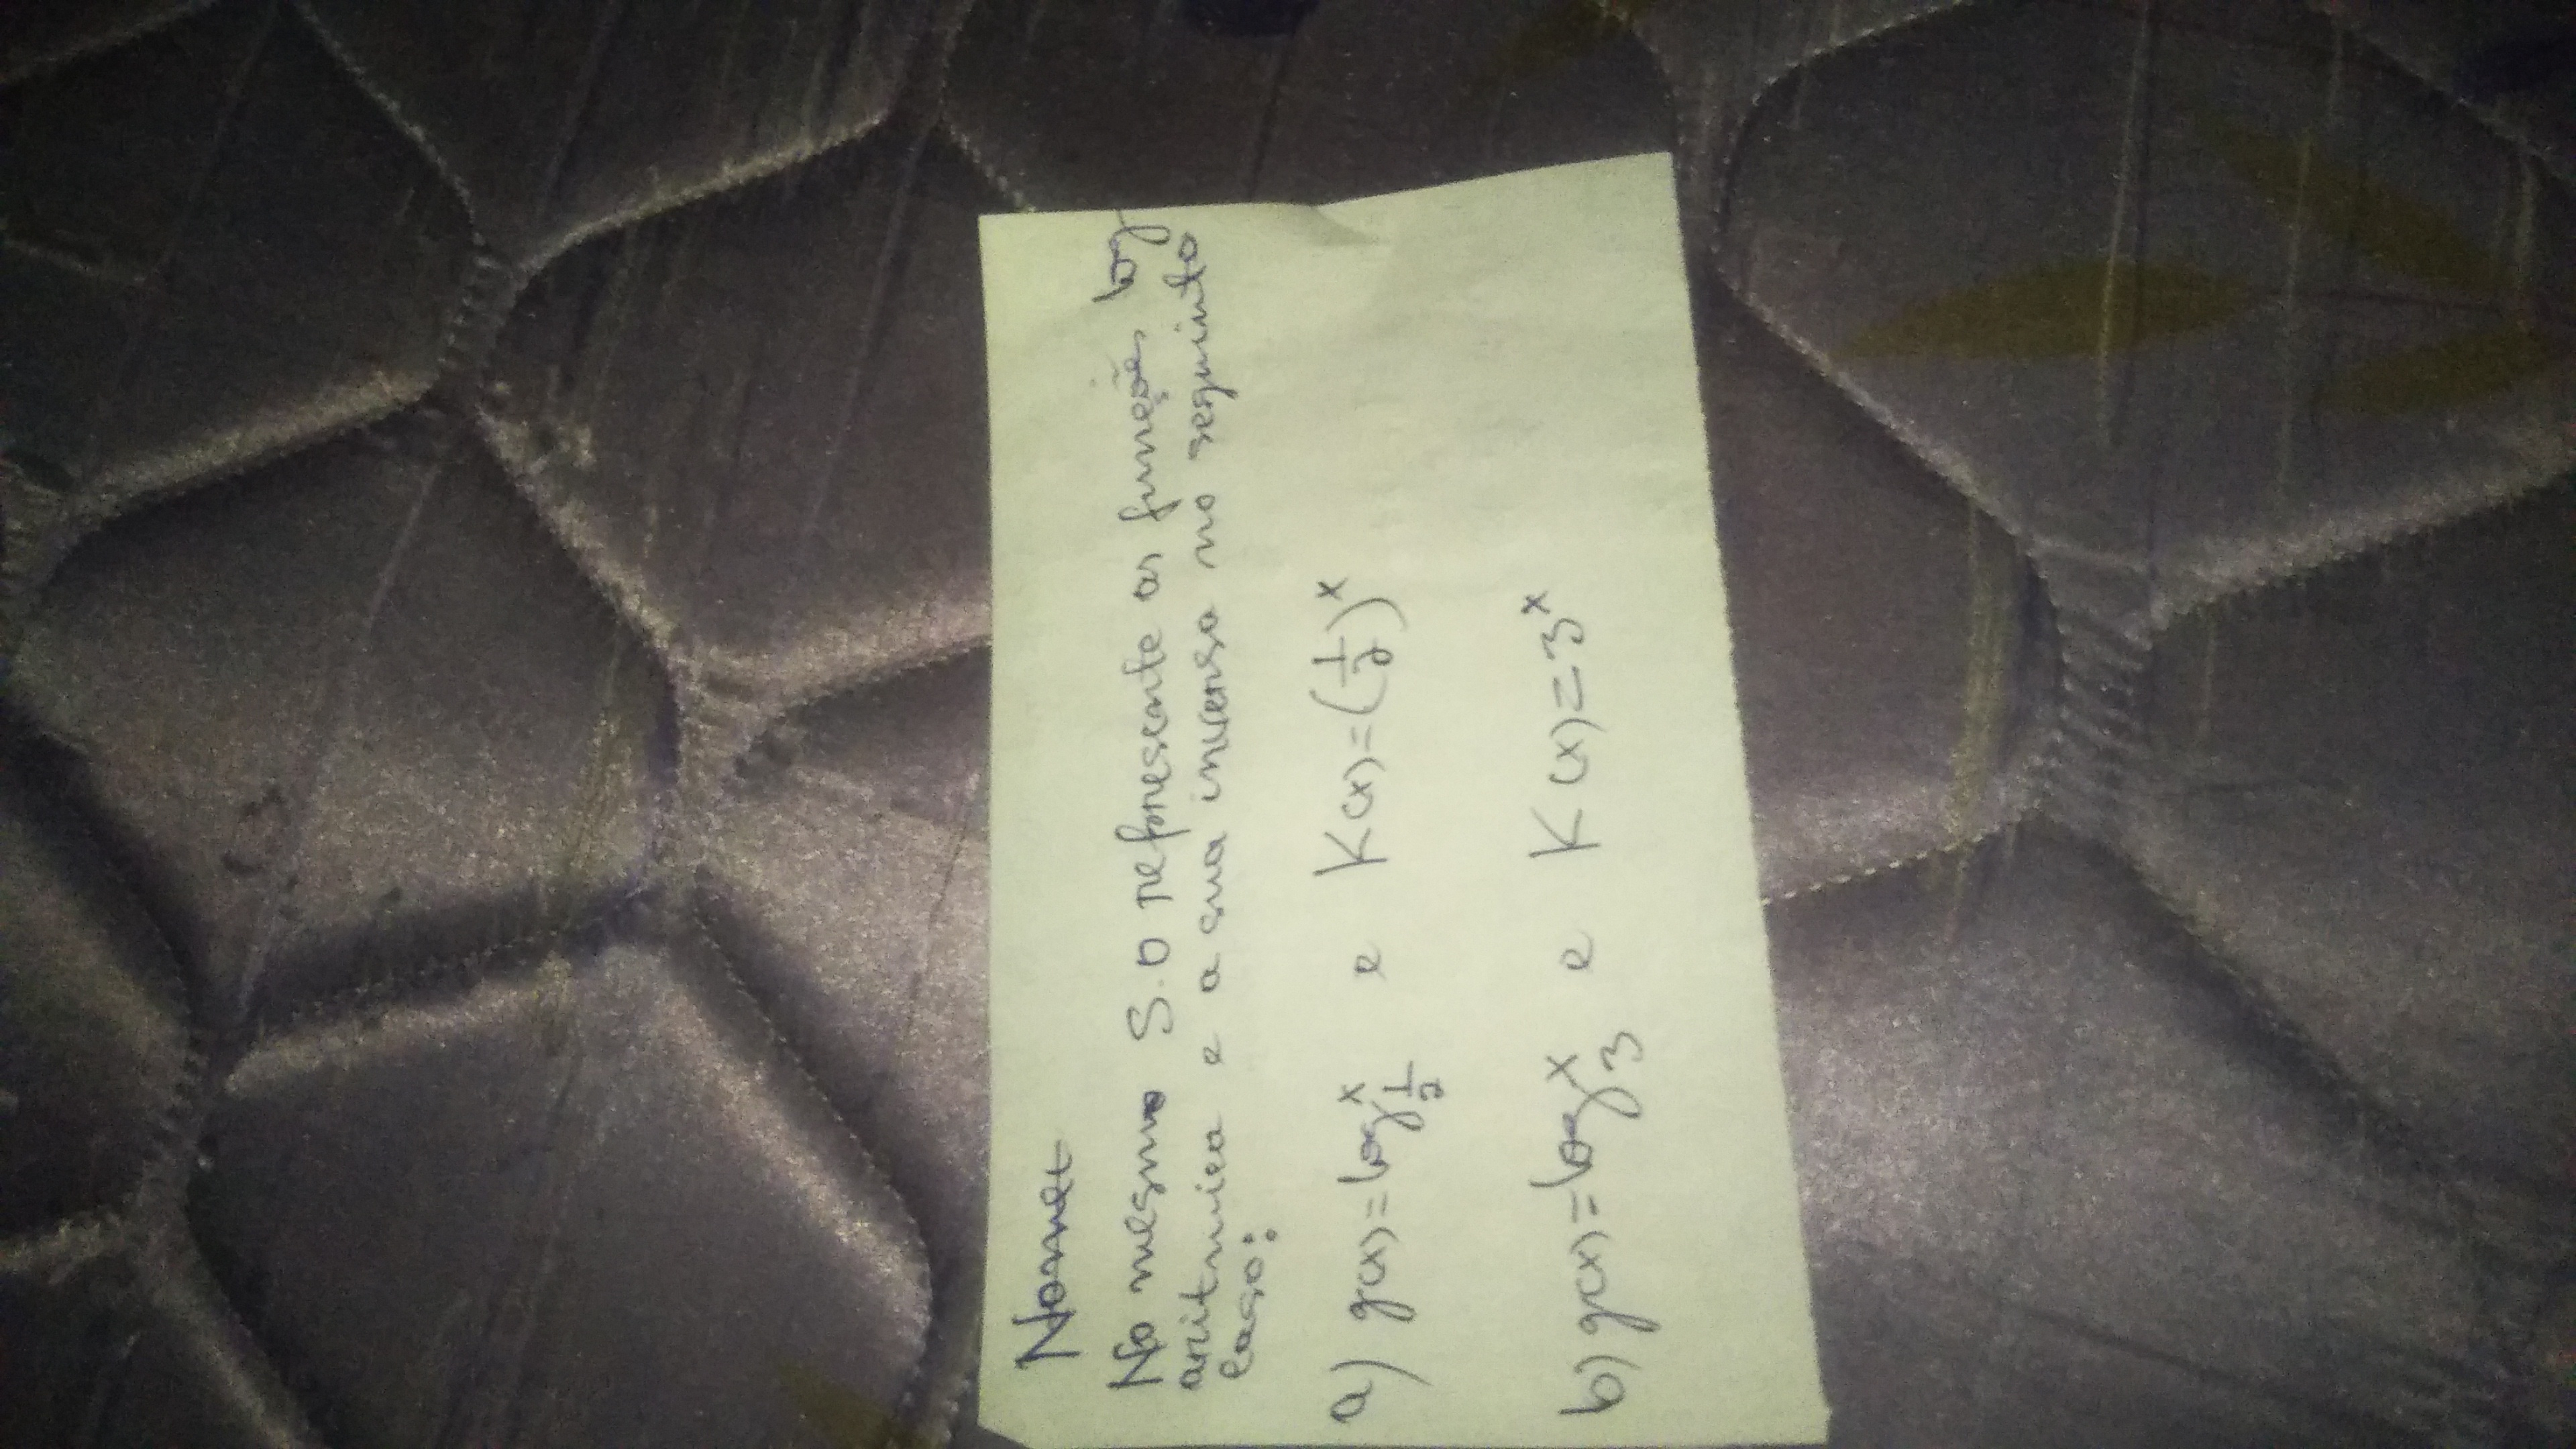 No mesmo S.O represente as funções log
aritmica e a sua inversa no seguinto
caso:
a) g(x)=log x 1/2 e K(x)=(1/2)^x
b) g(x)=log x 3 e K(x)=3^x